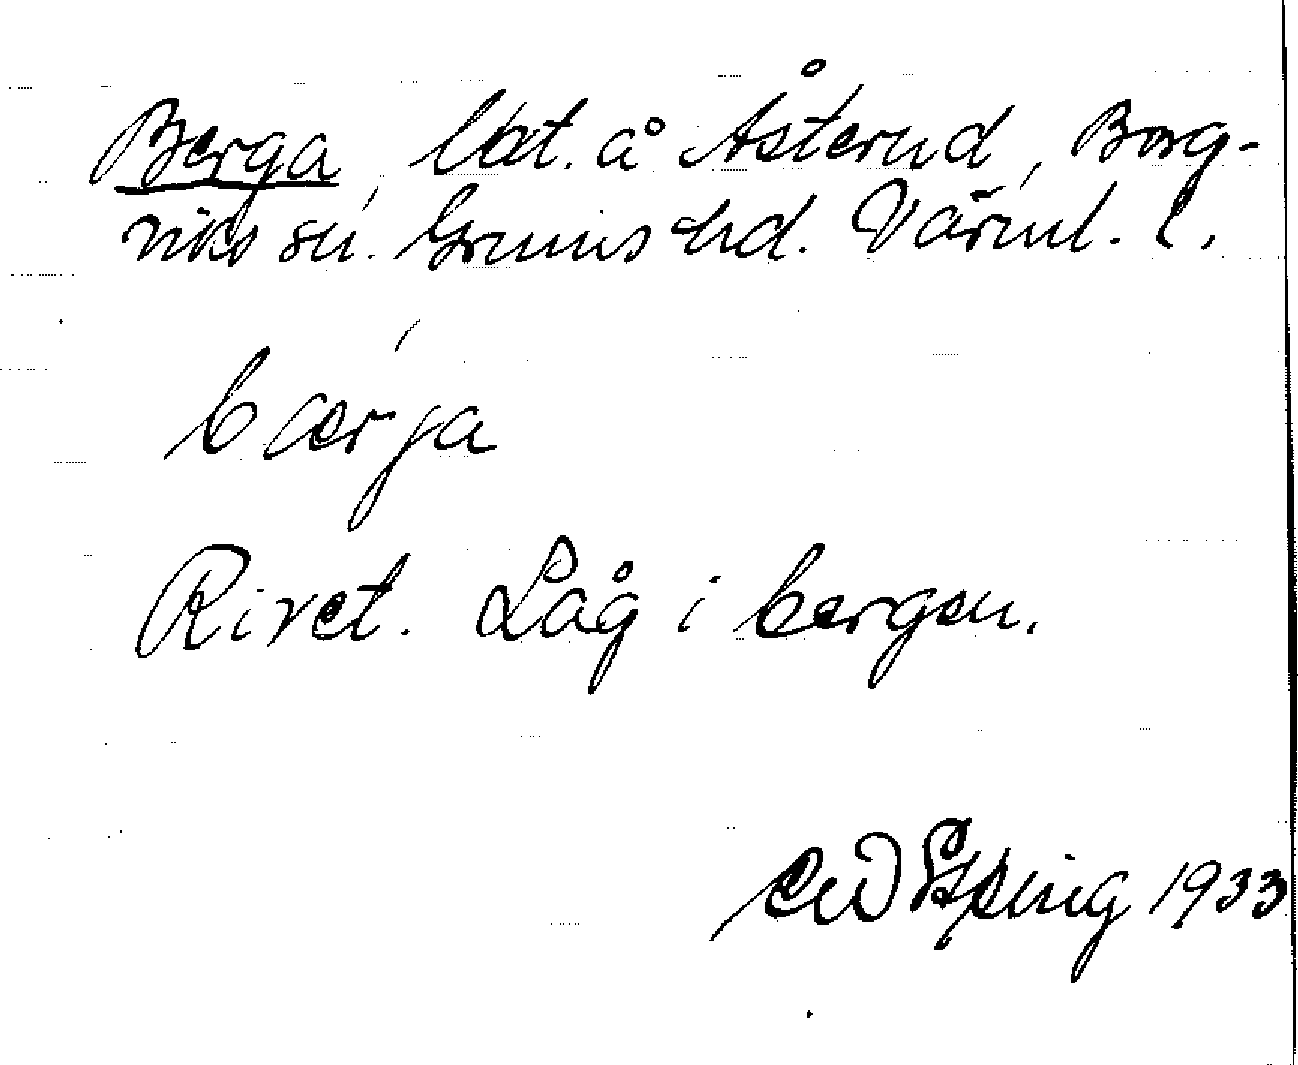 Berga, lät. å Åsterud, Borg-
viks sn. Grums hd. Värml. l.
bær´ja
Rivet. Låg i bergen.
1933